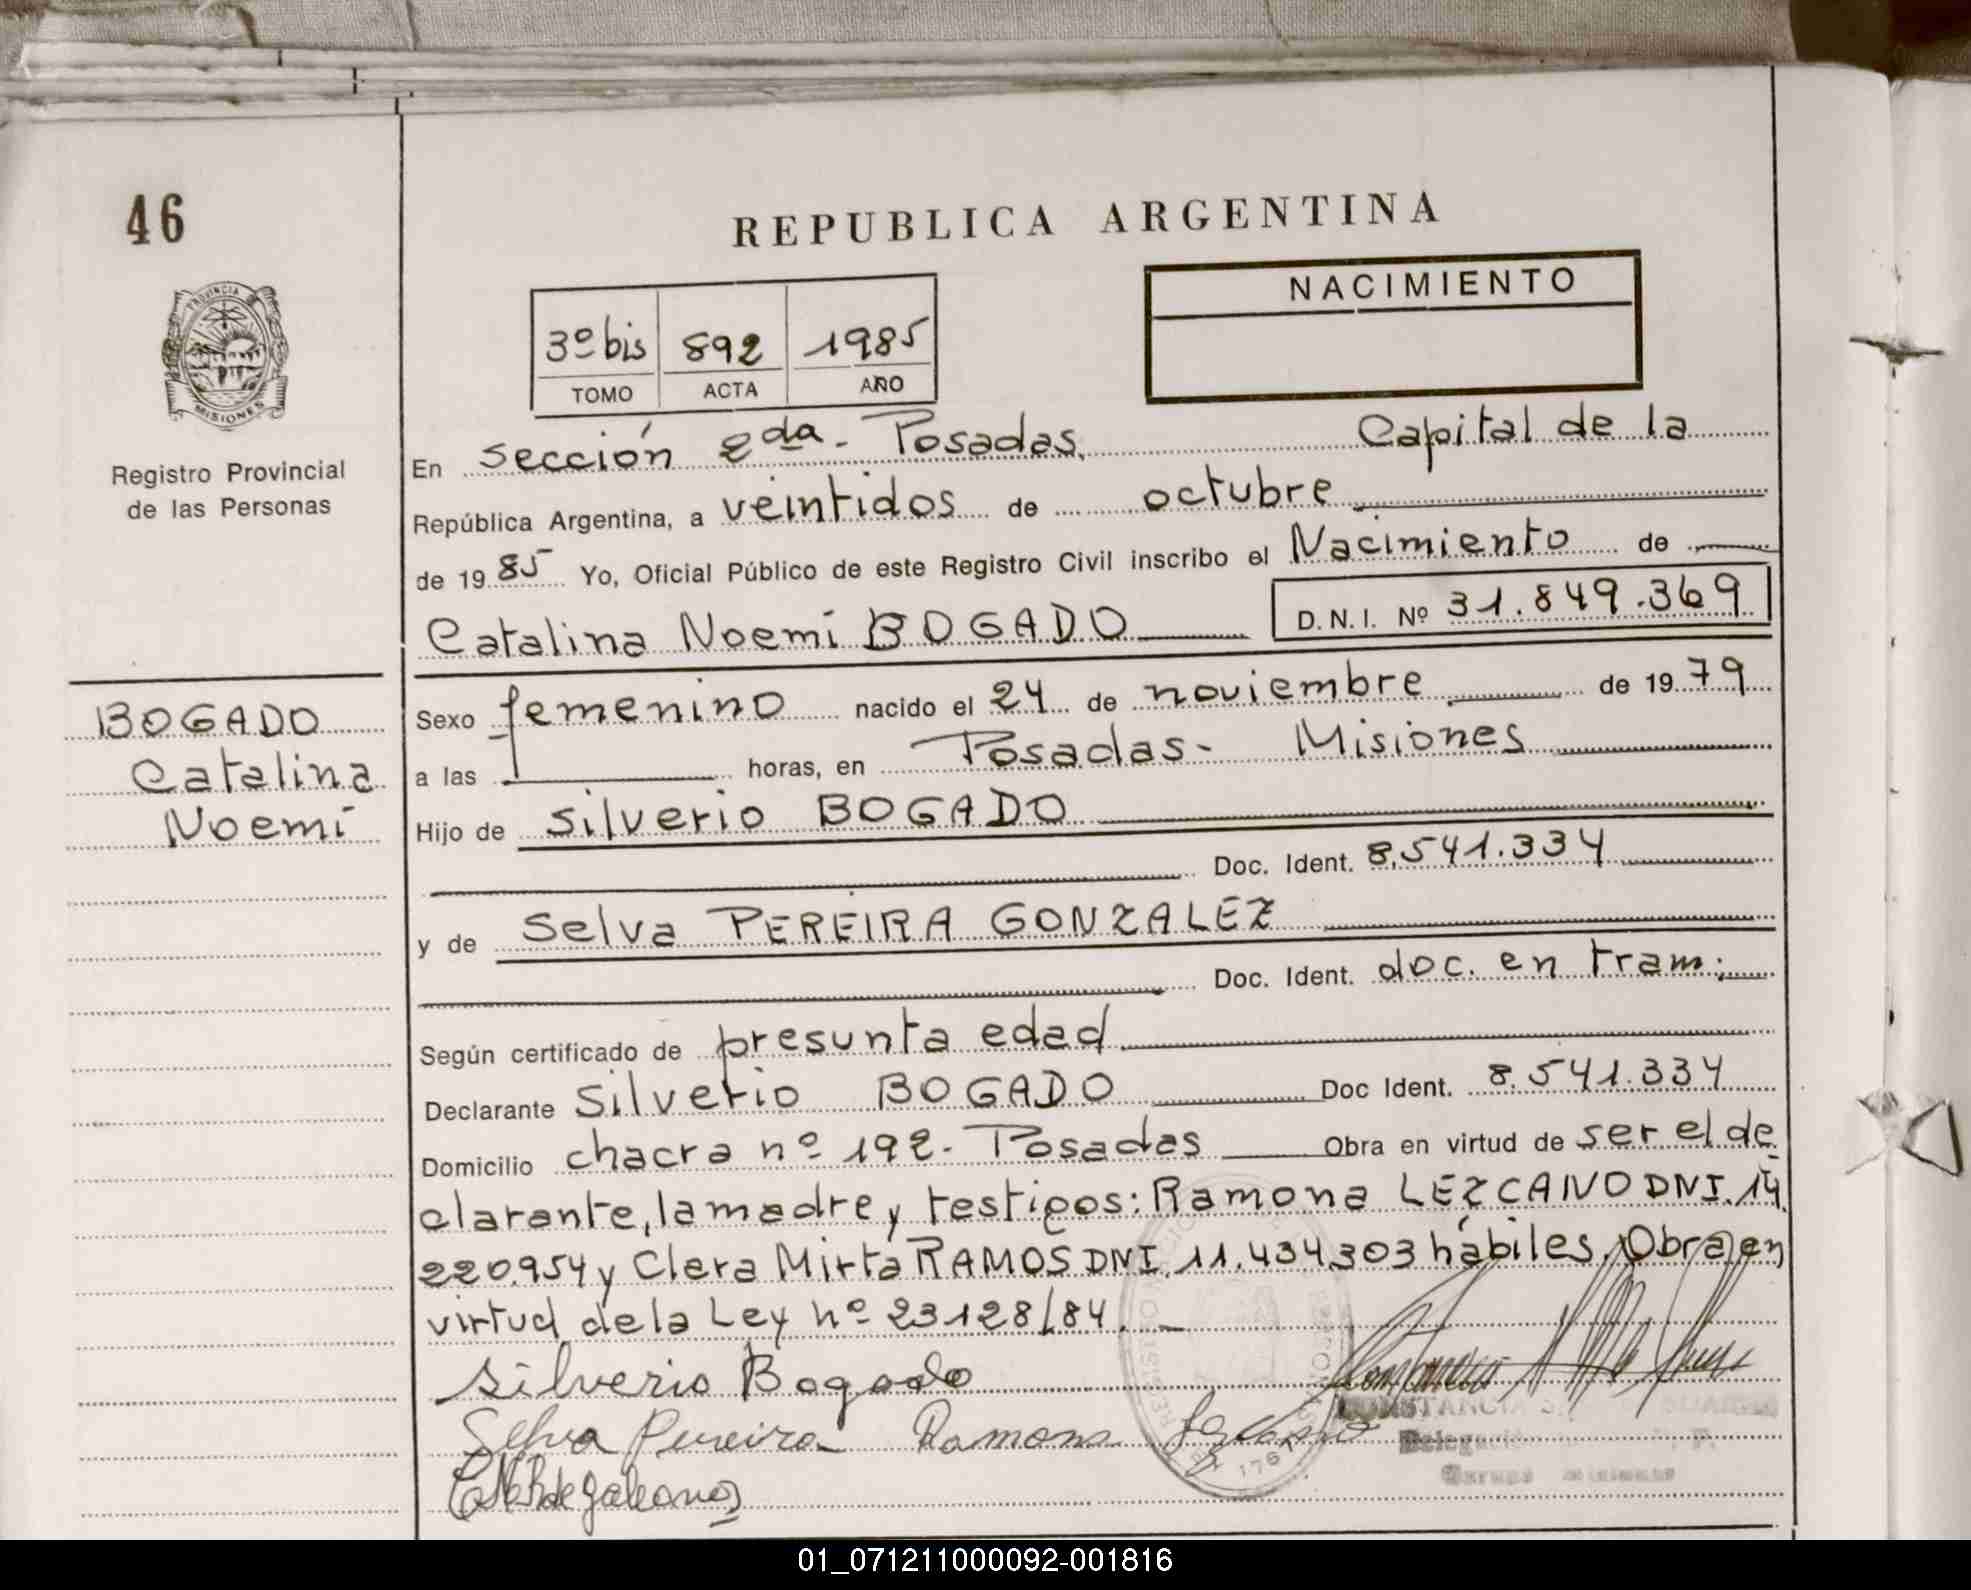 46
REPUBLICA ARGENTINA
NACIMIENTO
3º bis 892 1985
TOMO ACTA AÑO
PROVINCIA
MISIONES
Registro Provincial
de las Personas
En sección 2da - Posadas, Capital de la
República Argentina, a veintidos de octubre
de 1985 Yo, Oficial Público de este Registro Civil inscribo el Nacimiento de
Catalina Noemi BOGADO D.N.I. Nº 31.849.369
BOGADO
Catalina
Noemi
Sexo femenino nacido el 24 de noviembre de 1979
a las horas, en Posadas - Misiones
Hijo de Silverio BOGADO
Doc. Ident. 8.541.334
y de Selva PEREIRA GONZALEZ
Doc. Ident. doc. en tram.
Según certificado de presunta edad
Declarante Silverio BOGADO Doc Ident. 8.541.334
Domicilio chacra nº 192 - Posadas Obra en virtud de ser el de
clarante, la madre y testigos: Ramona LEZCANO DNI. 14.
220.954 y Clara Mirta RAMOS DNI. 11.434.303 hábiles. Obra en
virtud de la Ley nº 23128/84. -
Silverio Bogado
Selva Pereira Ramona Lezcano
01_071211000092-001816